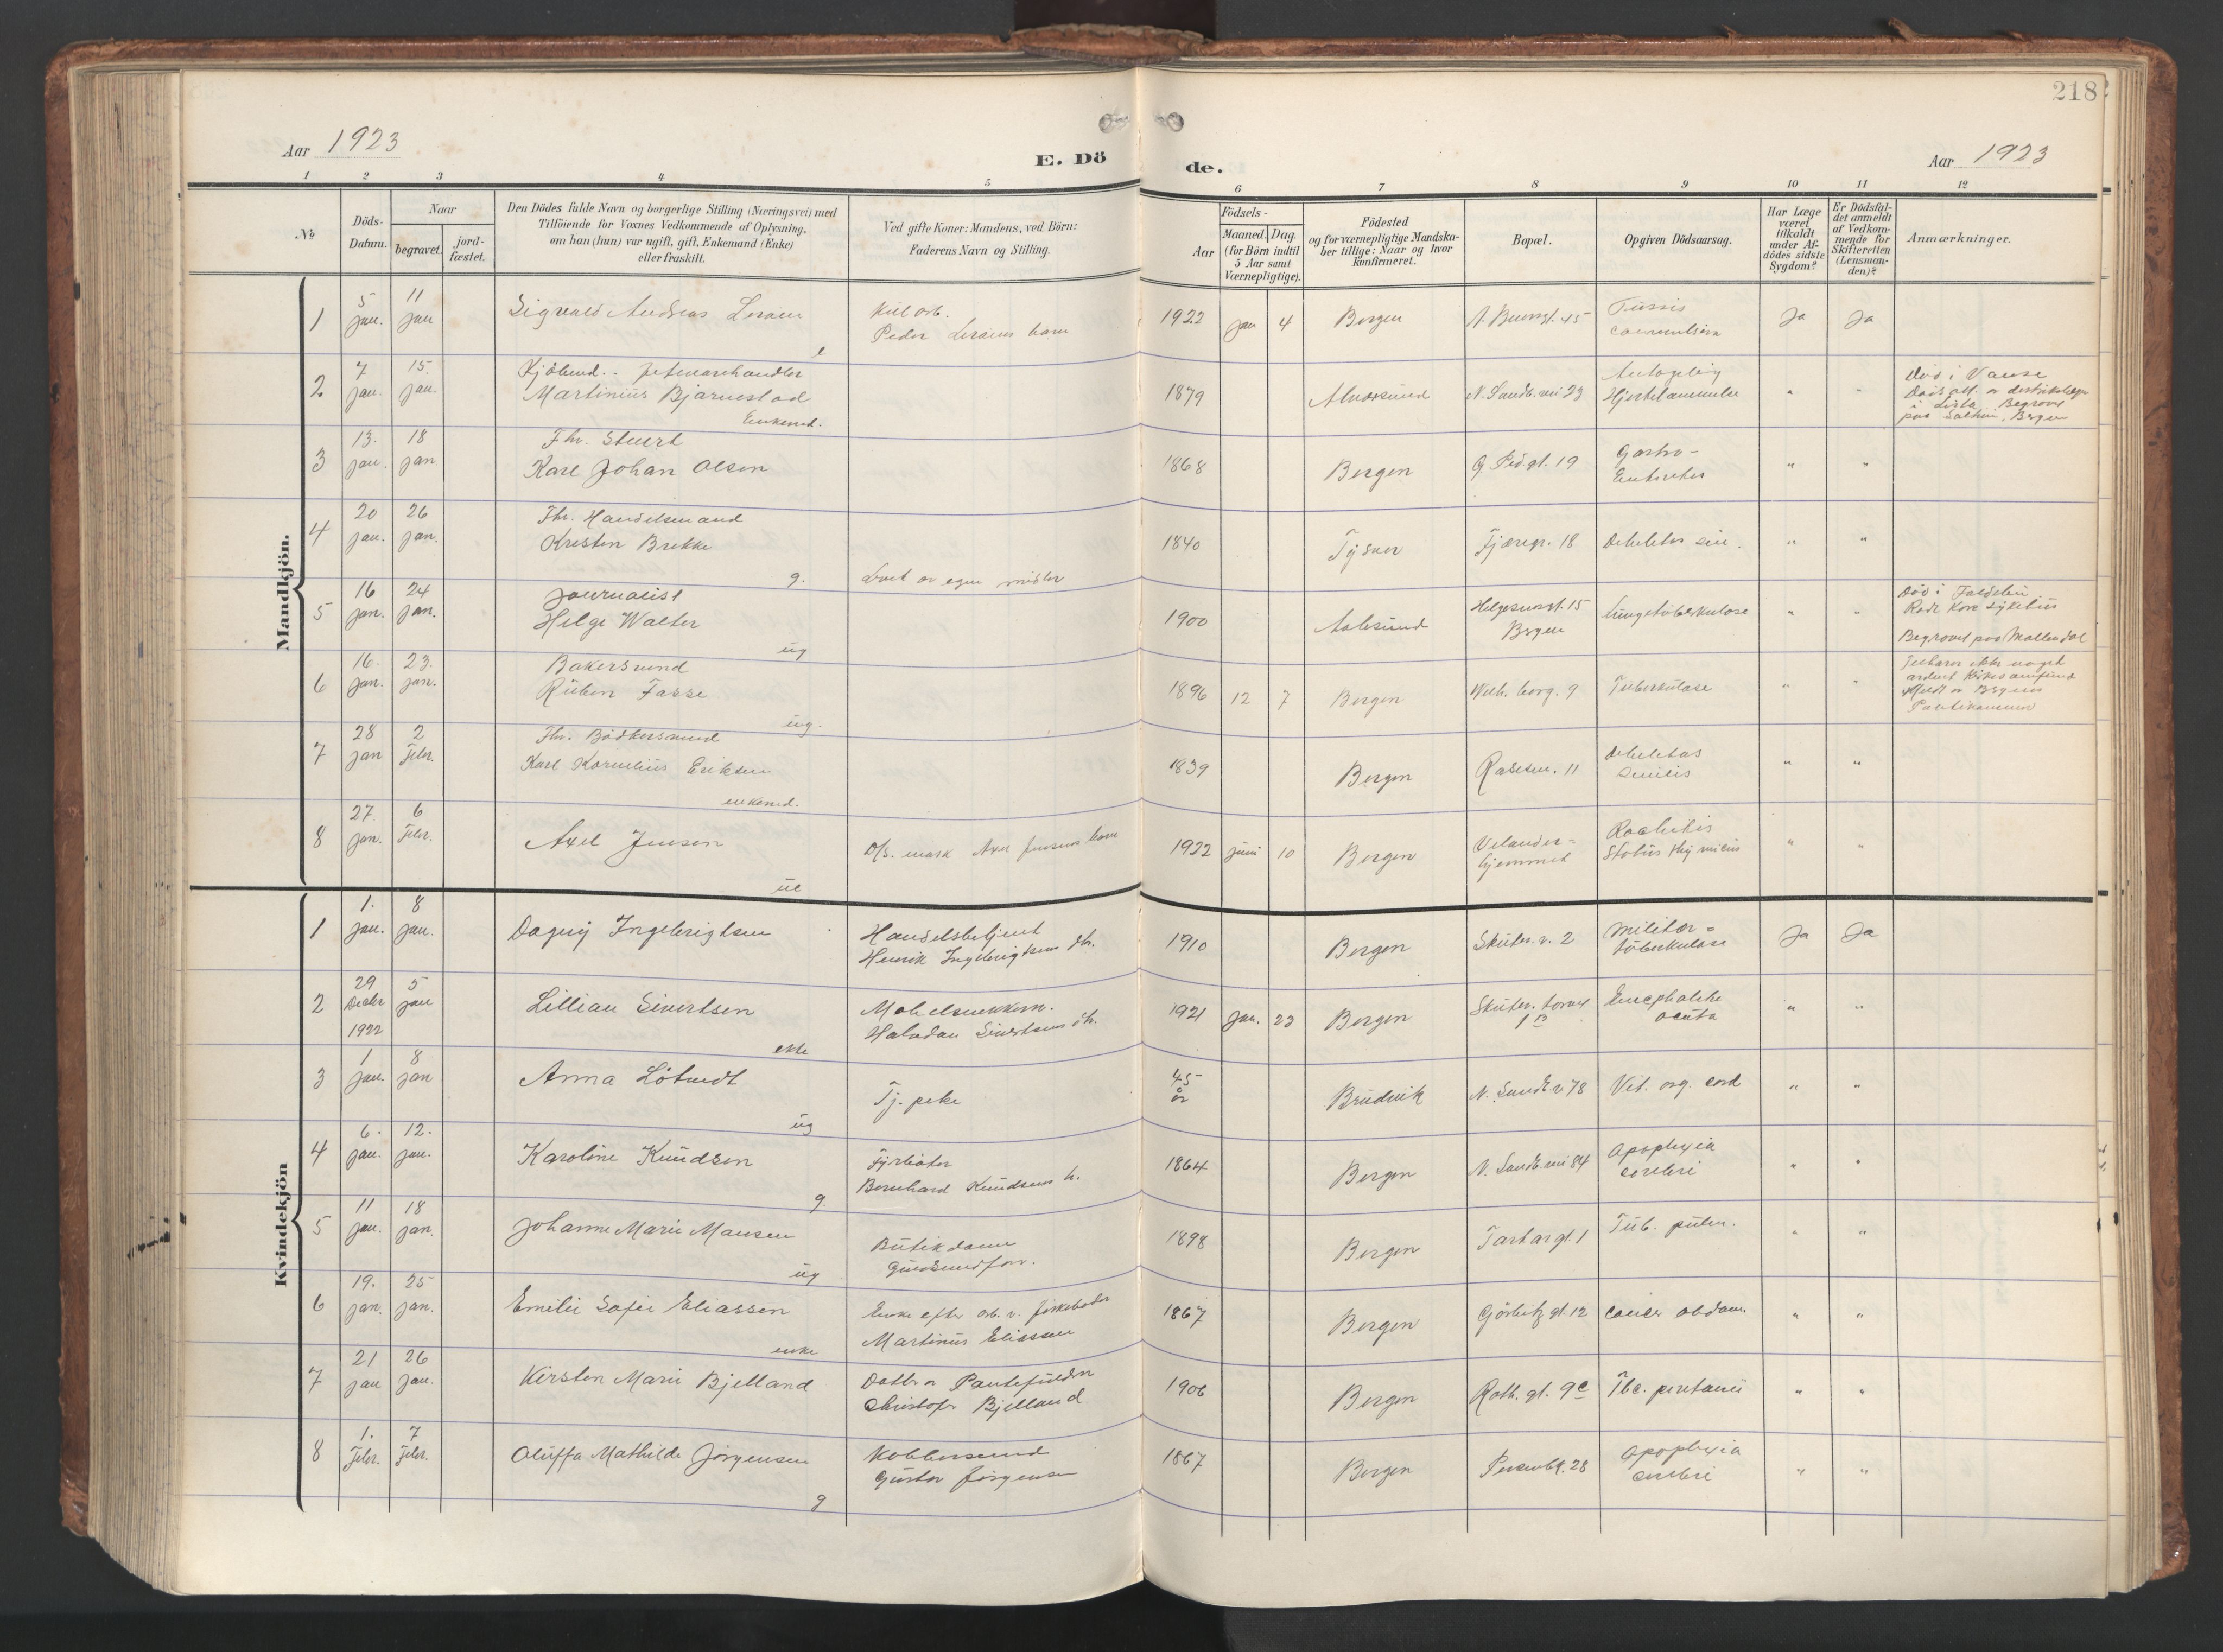 218
Aar 1923
E. Dö
de.
Aar 1923
1 2 3 4 5 6 7 8 9 10 11 12
№
Döds-
Datum.
Naar
begravet.
jord-
fæstet.
Den Dödes fulde Navn og borgerlige Stilling (Næringsvei) med
Tilföiende for Voxnes Vedkommende af Oplysning,
om han (hun) var ugift, gift, Enkemand (Enke)
eller fraskilt.
Ved gifte Koner: Mandens, ved Börn:
Faderens Navn og Stilling.
Födsels-
Aar
Maaned. Dag.
(for Börn indtil
5 Aar samt
Værnepligtige).
Födested
og for værnepligtige Mandska-
ber tillige: Naar og hvor
konfirmeret.
Bopæl.
Opgiven Dödsaarsag.
Har Læge
været
tilkaldt
under Af-
dödes sidste
Sygdom?
Er Dödsfal-
det anmeldt
af Vedkom-
mende for
Skifteretten
(Lensman-
den)?
Anmærkninger.
Mandkjön.
1
5 jan.
11 jan
Sigvald Andreas
Peder
barn
1922 jan 4
Bergen
45
Tussis
Ja Ja
2
7 jan.
15. jan.
Martinius Bjarnestad
Enkemd.
1879
N. Sandv. vei 23
" "
Död i Vanse
i Lista. Begravet
Bergen
3
13. jan.
18 jan.
Fhv. Stuert
Karl Johan Olsen
1868
Bergen
19
Gastro-
" "
4
20 jan.
26 jan.
Fhv. Handelsmand
Kristen Brekke
g.
Levet av egne midler
1840
Tysver
Fjæregr. 18
sen.
" "
5
16 jan.
24 jan.
Journalist
Helge Walter
ug
1900
Aalesund
15
Bergen
Lungetuberkulose
" "
Död i
Röde Kors sykehus
Begravet paa Möllendal
6
16. jan.
23. jan.
Bakersvend
Ruben Fasse
ug.
1896 12 7
Bergen
Wilh. borg. 9
Tuberkulose
" "
7
28 jan
2 Febr.
Fhv. Bödkersvend
Karl Kornelius Eriksen
enkemd.
1839
Bergen
11
senilis
" "
8
27. jan.
6 Febr.
Axel Jensen
ue
D/S. mask Axel Jensens barn
1922 juni 10
Bergen
Velander-
hjemmet
Rachitis
Status thymicus
" "
Kvindekjön
1
1. jan.
8 jan.
Dagny Ingebrigtsen
Handelsbetjent
Henrik Ingebrigtsens dtr.
1910
Bergen
Skutev. v. 2
Militær-
tuberkulose
Ja Ja
2
29 Decbr 1922
5 jan
Lillian Sivertsen
ekte
Halvdan Sivertsens dtr.
1921 Jan. 23
Bergen
Skutev. torvet
1 B
Encephalitis
acuta
" "
3
1 jan.
8 jan
Anna
ug
Tj. pike
45
år
Bruvik
N. Sandv. v 78
Vit. org. cord
" "
4
6. jan.
12. jan.
Karoline Knudsen
g
Fyrböter
Bernhard Knudsens h.
1864
Bergen
N. Sandv. vei 84
Apoplexia
cerebri
" "
5
11 jan.
18 jan.
Johanne Marie Mansen
ug
Butikdame
1898
Bergen
Tartargt. 1
Tub. pulm.
" "
6
19. jan.
25 jan.
Emilie Sofie Eliassen
enke
Enke efter arb. v.
Martinus Eliassen
1867
Bergen
gt. 12
Cancer abdom.
" "
7
21 jan
26 jan.
Kirsten Marie Bjelland
Datter av
Christofer Bjelland
1906
Bergen
Roth. gt. 9c
Tbc. peritonii
" "
8
1. Febr.
7 Febr.
Oluffa Mathilde Jörgensen
g
Kobbersvend
Gustav Jörgensen
1867
Bergen
28
Apoplexia
cerebri
" "